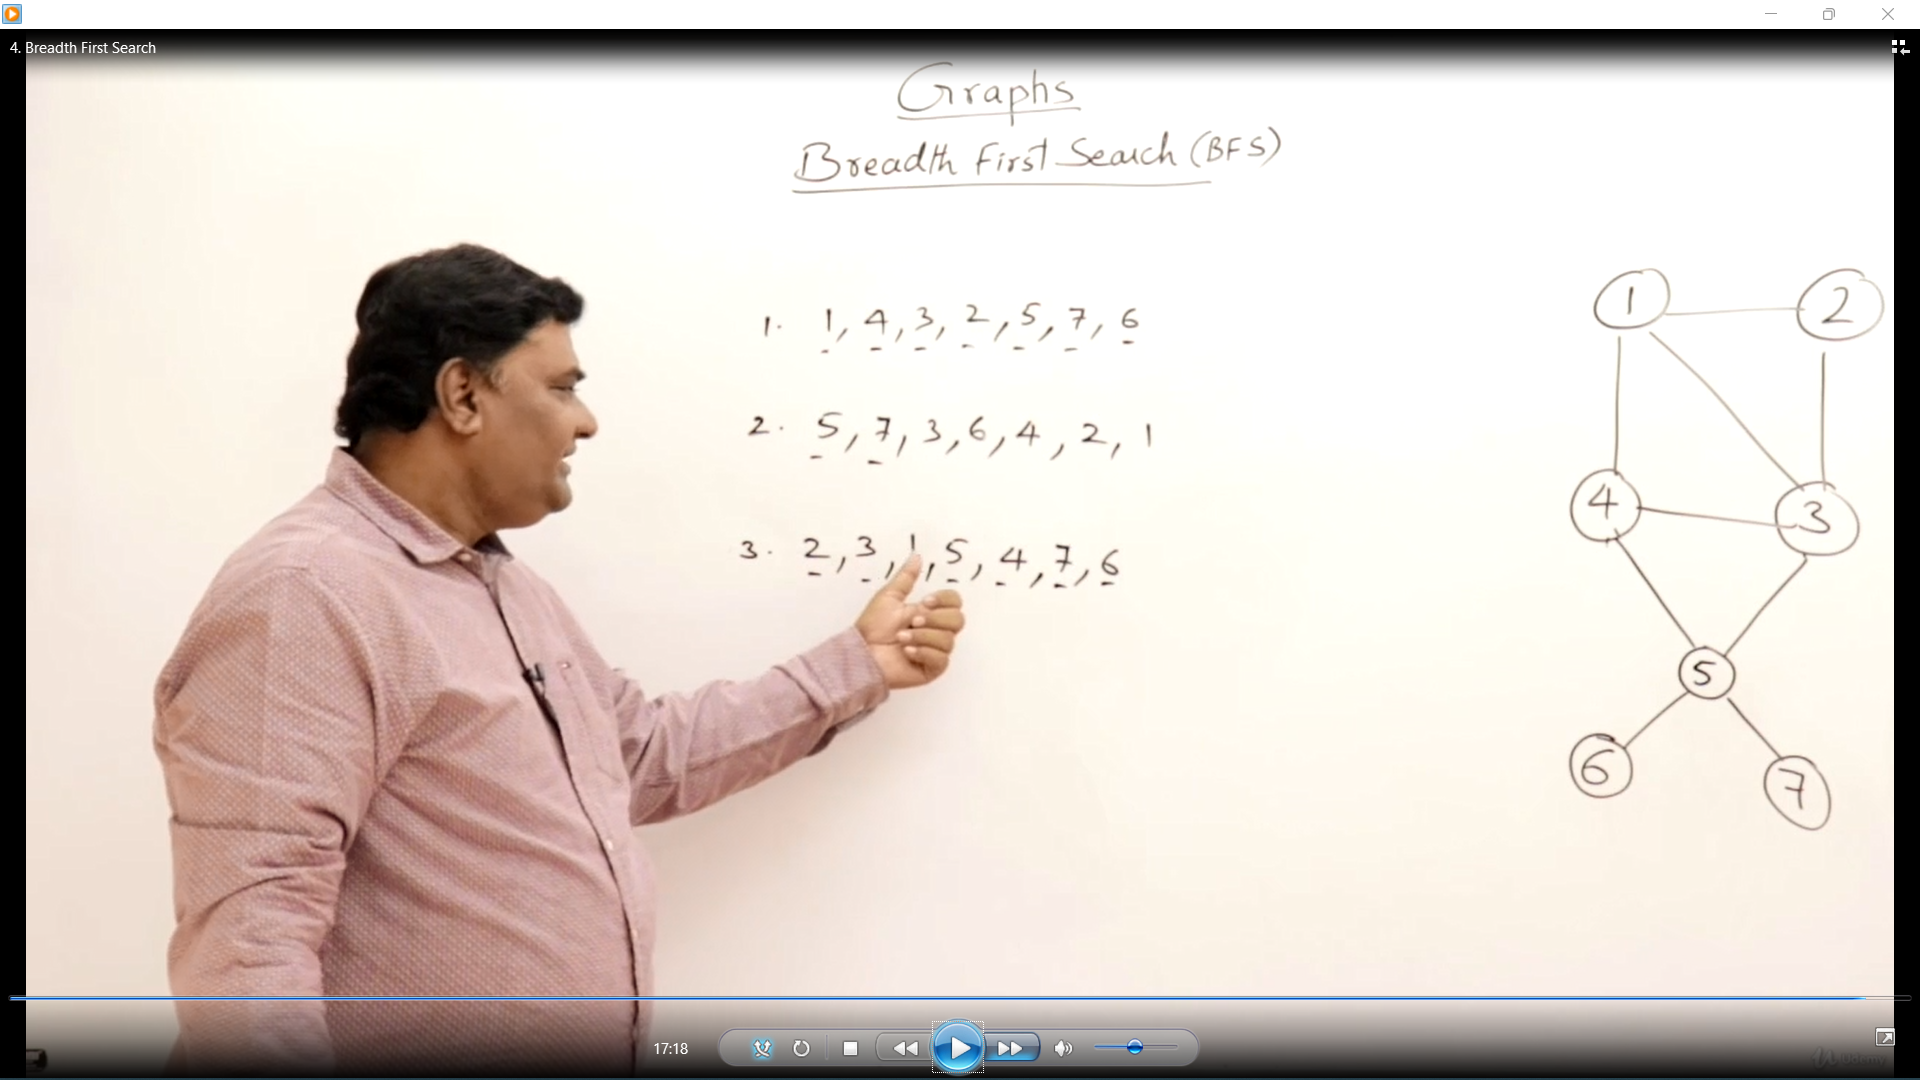 4. Breadth First Search
Graphs
Breadth First Search (BFS)
1. 1, 4, 3, 2, 5, 7, 6
2. 5, 7, 3, 6, 4, 2, 1
3. 2, 3, 1, 5, 4, 7, 6
1 2
4 3
5
6 7
17:18